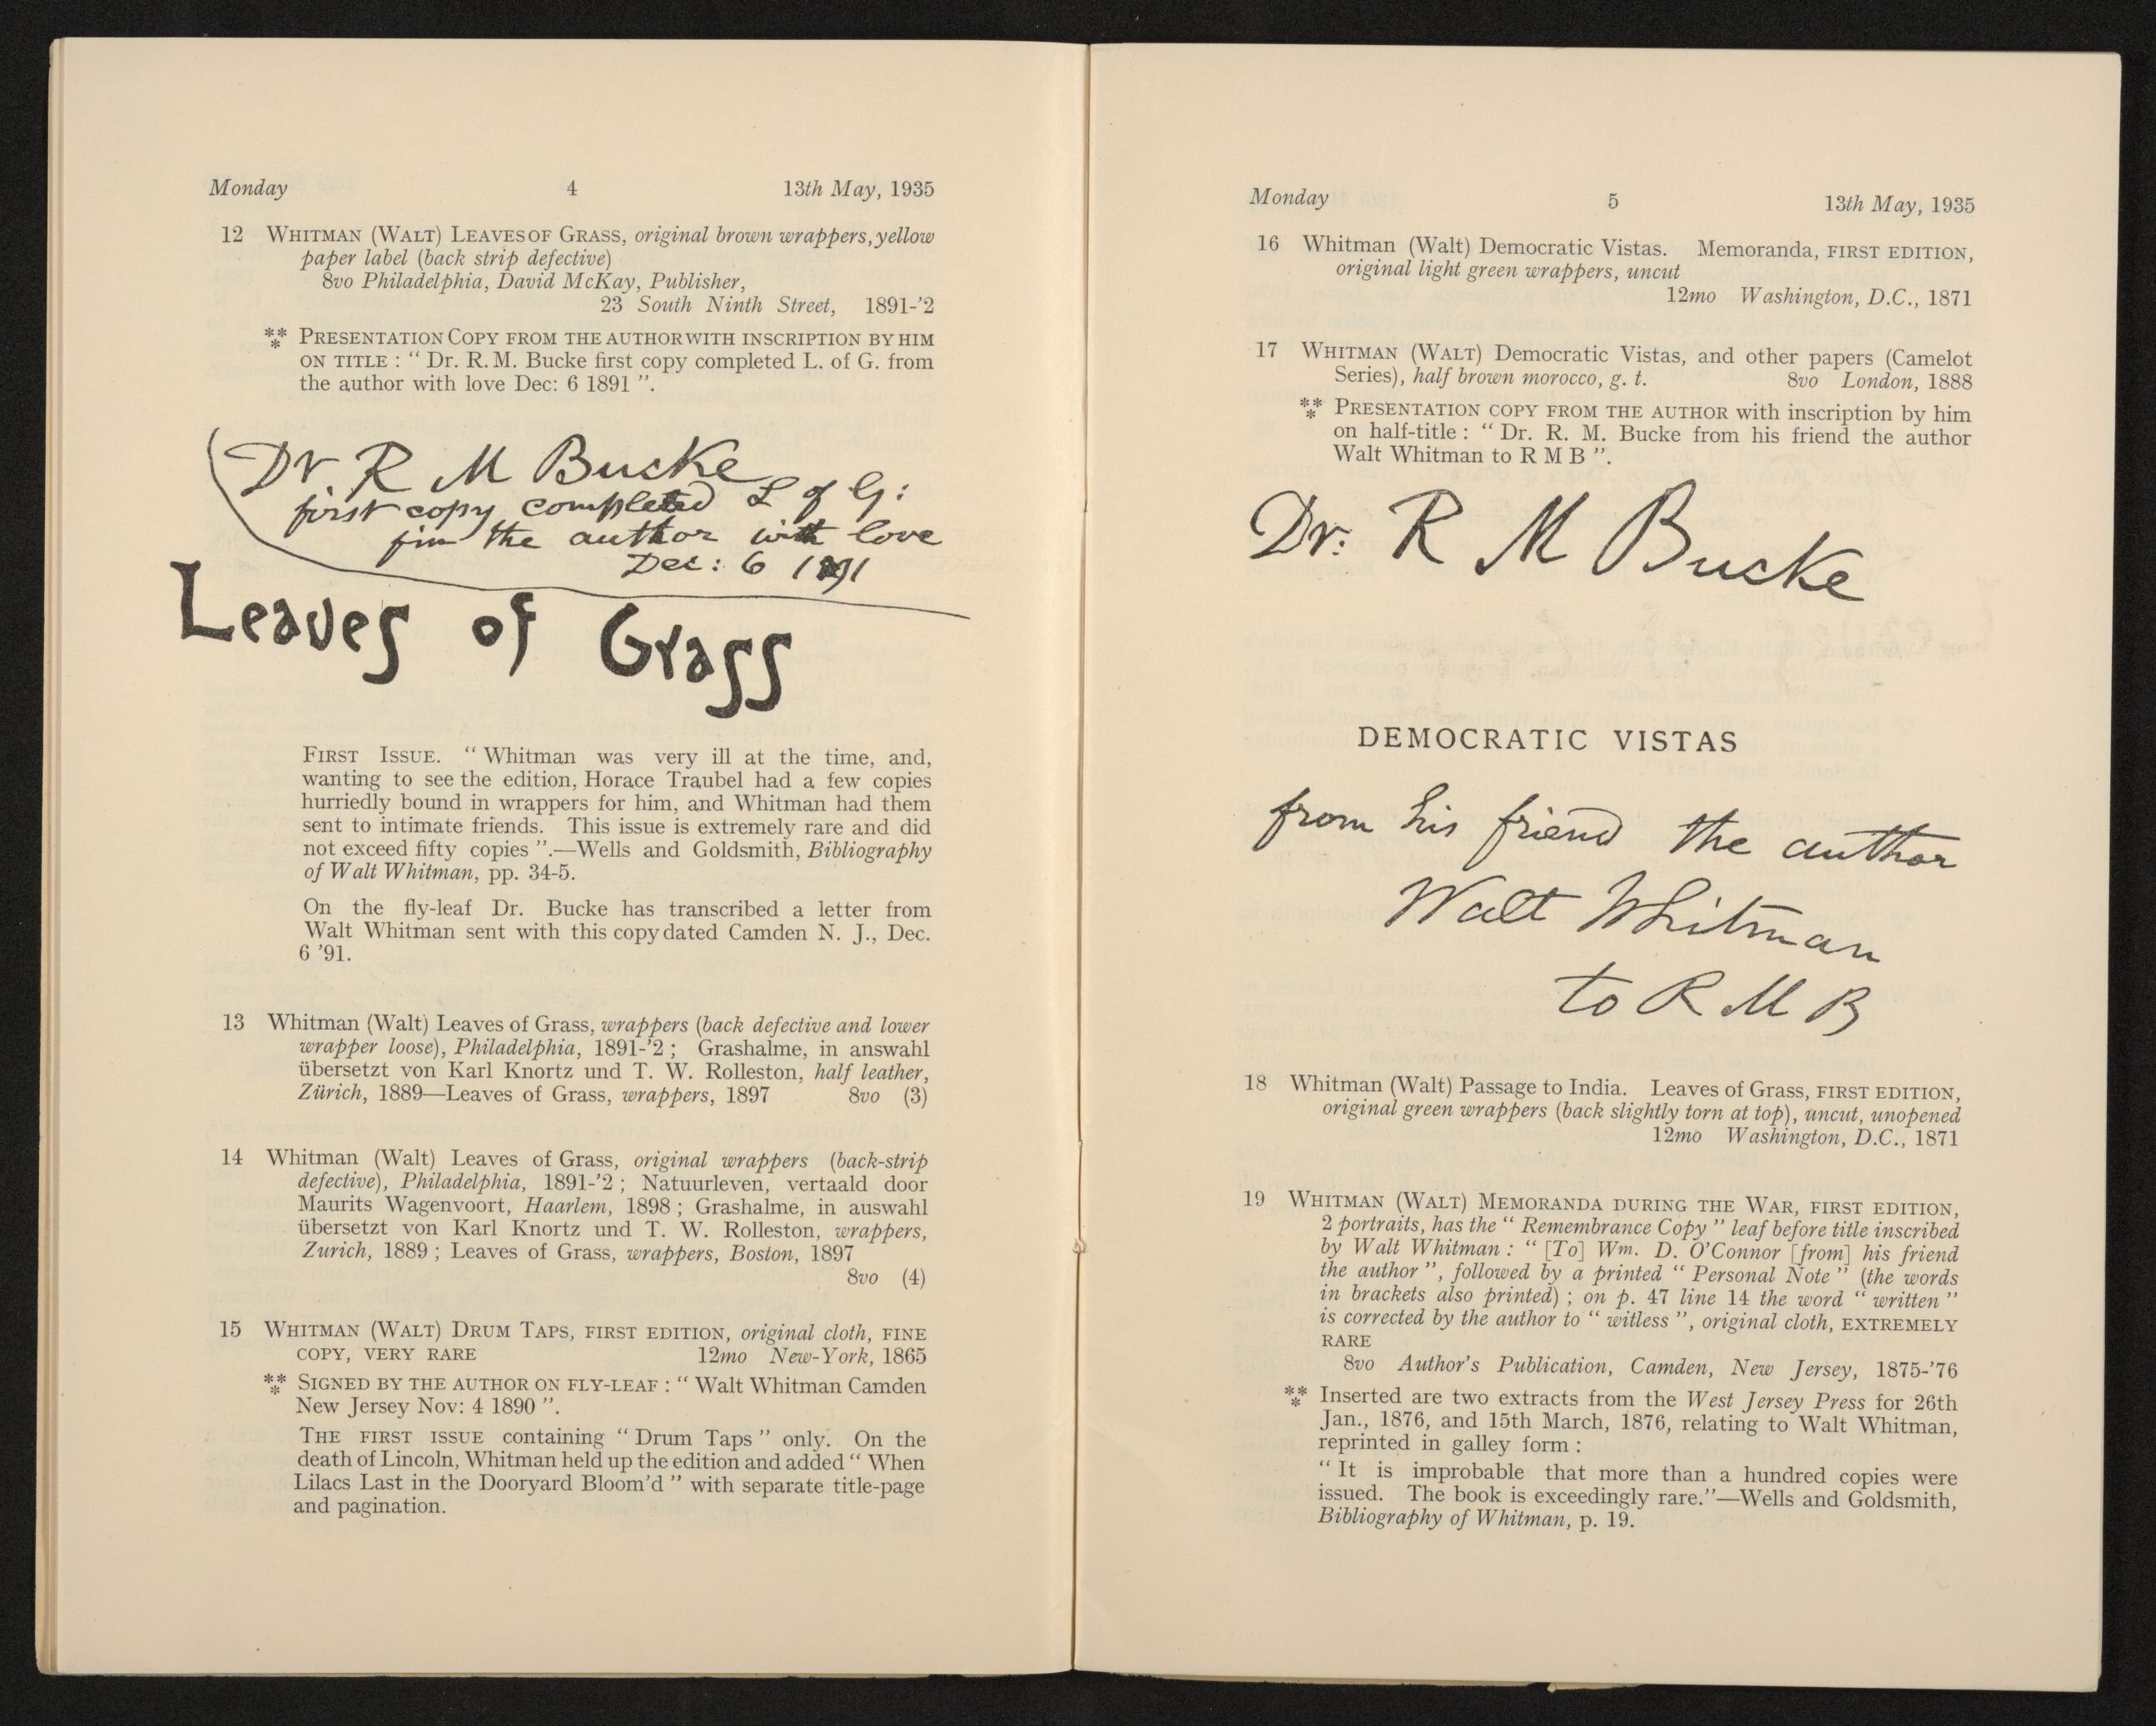 Monday 4 13th May, 1935
12 WHITMAN (WALT) LEAVES OF GRASS, original brown wrappers, yellow
paper label (back strip defective)
8vo Philadelphia, David McKay, Publisher,
23 South Ninth Street, 1891-'2
*** PRESENTATION COPY FROM THE AUTHOR WITH INSCRIPTION BY HIM
ON TITLE : “ Dr. R. M. Bucke first copy completed L. of G. from
the author with love Dec: 6 1891 ”.
Dr. R M Bucke
first copy completed L of G:
fm the author with love
Dec: 6 1891
Leaves of Grass
FIRST ISSUE. “ Whitman was very ill at the time, and,
wanting to see the edition, Horace Traubel had a few copies
hurriedly bound in wrappers for him, and Whitman had them
sent to intimate friends. This issue is extremely rare and did
not exceed fifty copies ”.—Wells and Goldsmith, Bibliography
of Walt Whitman, pp. 34-5.
On the fly-leaf Dr. Bucke has transcribed a letter from
Walt Whitman sent with this copy dated Camden N. J., Dec.
6 '91.
13 Whitman (Walt) Leaves of Grass, wrappers (back defective and lower
wrapper loose), Philadelphia, 1891-'2 ; Grashalme, in answahl
übersetzt von Karl Knortz und T. W. Rolleston, half leather,
Zürich, 1889—Leaves of Grass, wrappers, 1897 8vo (3)
14 Whitman (Walt) Leaves of Grass, original wrappers (back-strip
defective), Philadelphia, 1891-'2 ; Natuurleven, vertaald door
Maurits Wagenvoort, Haarlem, 1898 ; Grashalme, in auswahl
übersetzt von Karl Knortz und T. W. Rolleston, wrappers,
Zurich, 1889 ; Leaves of Grass, wrappers, Boston, 1897
8vo (4)
15 WHITMAN (WALT) DRUM TAPS, FIRST EDITION, original cloth, FINE
COPY, VERY RARE 12mo New-York, 1865
*** SIGNED BY THE AUTHOR ON FLY-LEAF : “ Walt Whitman Camden
New Jersey Nov: 4 1890 ”.
THE FIRST ISSUE containing “ Drum Taps ” only. On the
death of Lincoln, Whitman held up the edition and added “ When
Lilacs Last in the Dooryard Bloom'd ” with separate title-page
and pagination.
Monday 5 13th May, 1935
16 Whitman (Walt) Democratic Vistas. Memoranda, FIRST EDITION,
original light green wrappers, uncut
12mo Washington, D.C., 1871
17 WHITMAN (WALT) Democratic Vistas, and other papers (Camelot
Series), half brown morocco, g. t. 8vo London, 1888
*** PRESENTATION COPY FROM THE AUTHOR with inscription by him
on half-title : “ Dr. R. M. Bucke from his friend the author
Walt Whitman to R M B ”.
Dr: R M Bucke
DEMOCRATIC VISTAS
from his friend the author
Walt Whitman
to R M B
18 Whitman (Walt) Passage to India. Leaves of Grass, FIRST EDITION,
original green wrappers (back slightly torn at top), uncut, unopened
12mo Washington, D.C., 1871
19 WHITMAN (WALT) MEMORANDA DURING THE WAR, FIRST EDITION,
2 portraits, has the “ Remembrance Copy ” leaf before title inscribed
by Walt Whitman : “ [To] Wm. D. O'Connor [from] his friend
the author ”, followed by a printed “ Personal Note ” (the words
in brackets also printed) ; on p. 47 line 14 the word “ written ”
is corrected by the author to “ witless ”, original cloth, EXTREMELY
RARE
8vo Author's Publication, Camden, New Jersey, 1875-'76
*** Inserted are two extracts from the West Jersey Press for 26th
Jan., 1876, and 15th March, 1876, relating to Walt Whitman,
reprinted in galley form :
“ It is improbable that more than a hundred copies were
issued. The book is exceedingly rare.”—Wells and Goldsmith,
Bibliography of Whitman, p. 19.